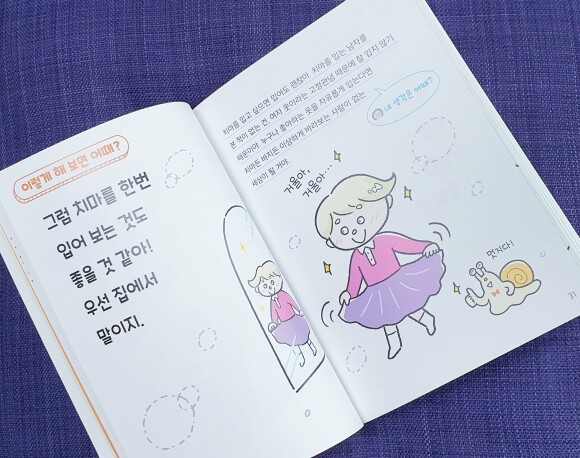 이렇게 해 보면 어때?
그럼 치마를 한번
입어 보는 것도
좋을 것 같아!
우선 집에서
말이지.
치마를 입고 싶으면 입어도 괜찮아. 치마를 입는 남자를
본 적이 없는 건 여자 옷이라는 고정관념 때문에 잘 입지 않기
때문이야. 누구나 좋아하는 옷을 자유롭게 입는다면
치마든 바지든 이상하게 바라보는 사람이 없는
세상이 될 거야.
네 생각은 어때?
거울아,
거울아…
멋지다!
31